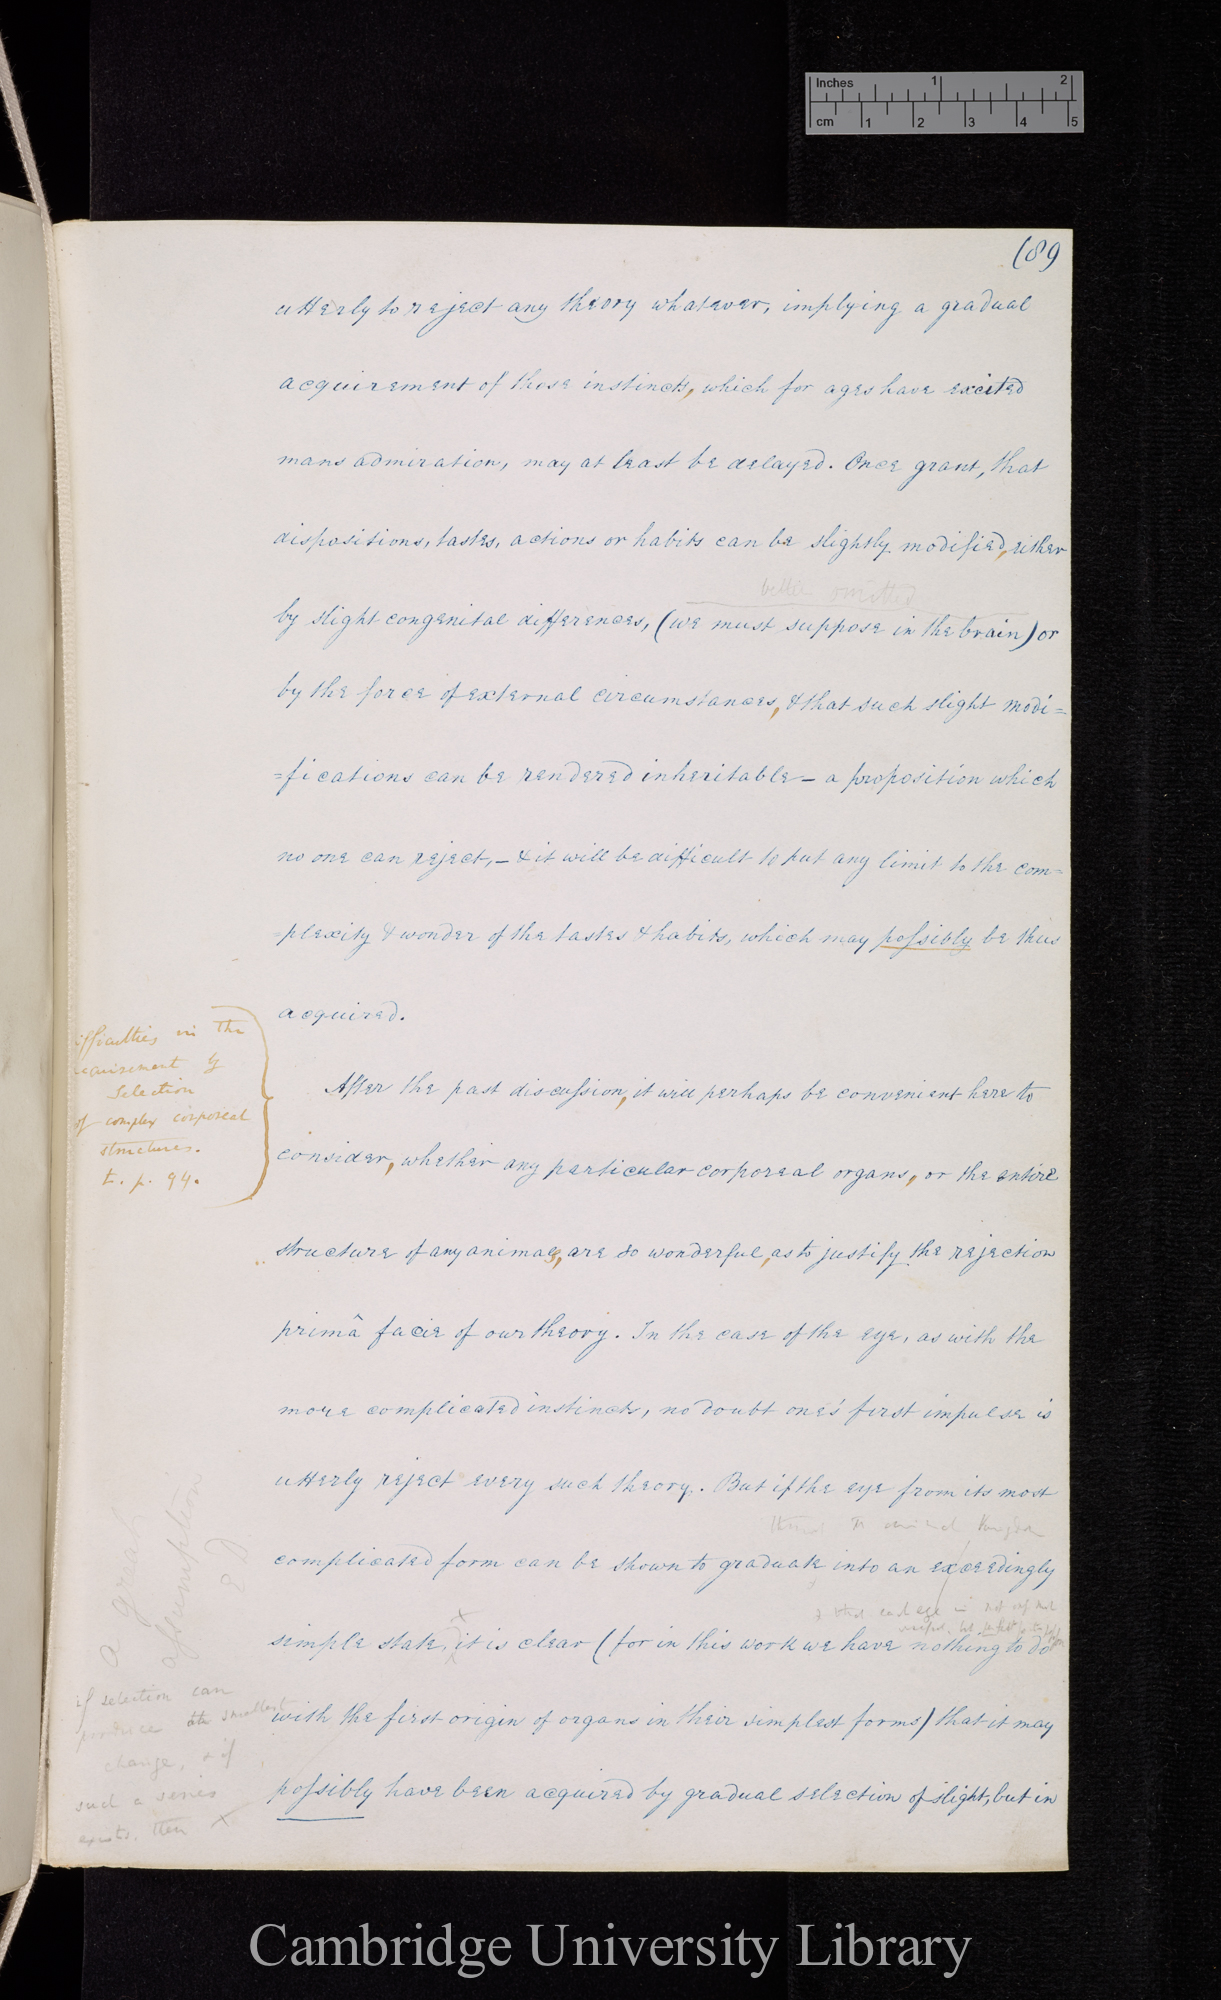 Inches 1 2
cm 1 2 3 4 5
(89
utterly to reject any theory whatever, implying a gradual
acquirement of those instincts, which for ages have excited
mans admiration, may at least be delayed. Once grant, that
dispositions, tastes, actions or habits can be slightly modified, either
better omitted
by slight congenital differences, (we must suppose in the brain) or
by the force of external circumstances, & that such slight modi=
=fications can be rendered inheritable – a proposition which
no one can reject, – & it will be difficult to put any limit to the com=
=plexity & wonder of the tastes & habits, which may possibly be thus
acquired.
ifficulties in the
equirement by
Selection
of complex corporeal
structures.
t. p. 94.
After the past discussion, it will perhaps be convenient here to
consider, whether any particular corporeal organs, or the entire
structure of any animals, are so wonderful, as to justify the rejection
primâ facie of our theory. In the case of the eye, as with the
more complicated instincts, no doubt one's first impulse is
utterly reject every such theory. But if the eye from its most
the animal Kingdom
complicated form can be shown to graduate into an exceedingly
& that each eye is not
simple state, X it is clear (for in this work we have nothing to do
with the first origin of organs in their simplest forms) that it may
possibly have been acquired by gradual selection of slight, but in
a great
assumption
E D
if selection can
produce the smallest
change, & if
such a series
exists, then X
Cambridge University Library